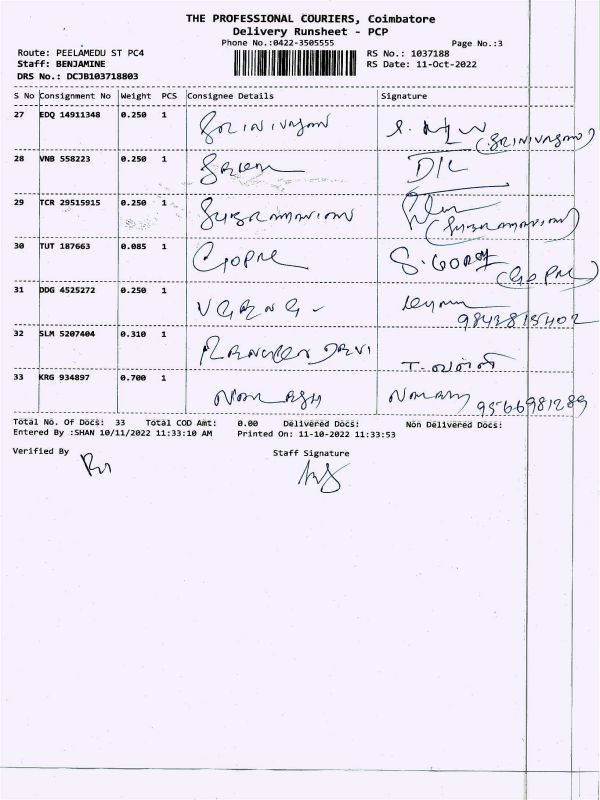 THE PROFESSIONAL COURIERS, Coimbatore
Delivery Runsheet - PCP
Phone No.:0422-3505555
Page No.:3
Route: PEELAMEDU ST PC4
RS No.: 1037188
Staff: BENJAMINE
RS Date: 11-Oct-2022
DRS No.: DCJB103718803
S No Consignment No Weight PCS Consignee Details Signature
27 EDQ 14911348 0.250 1 SRINIVASAN
(SRINIVASAN)
28 VNB 558223 0.250 1 D/L
29 TCR 29515915 0.250 1 SUBRAMANIAN
(SUBRAMANIAN)
30 TUT 187663 0.085 1 GOPAL S. GOPAL
(GOPAL)
31 DDG 4525272 0.250 1
9842815402
32 SLM 5207404 0.310 1 DEVI
33 KRG 934897 0.700 1 9566981289
Total No. Of Docs: 33 Total COD Amt: 0.00 Delivered Docs: Non Delivered Docs:
Entered By :SHAN 10/11/2022 11:33:10 AM Printed On: 11-10-2022 11:33:53
Verified By Staff Signature